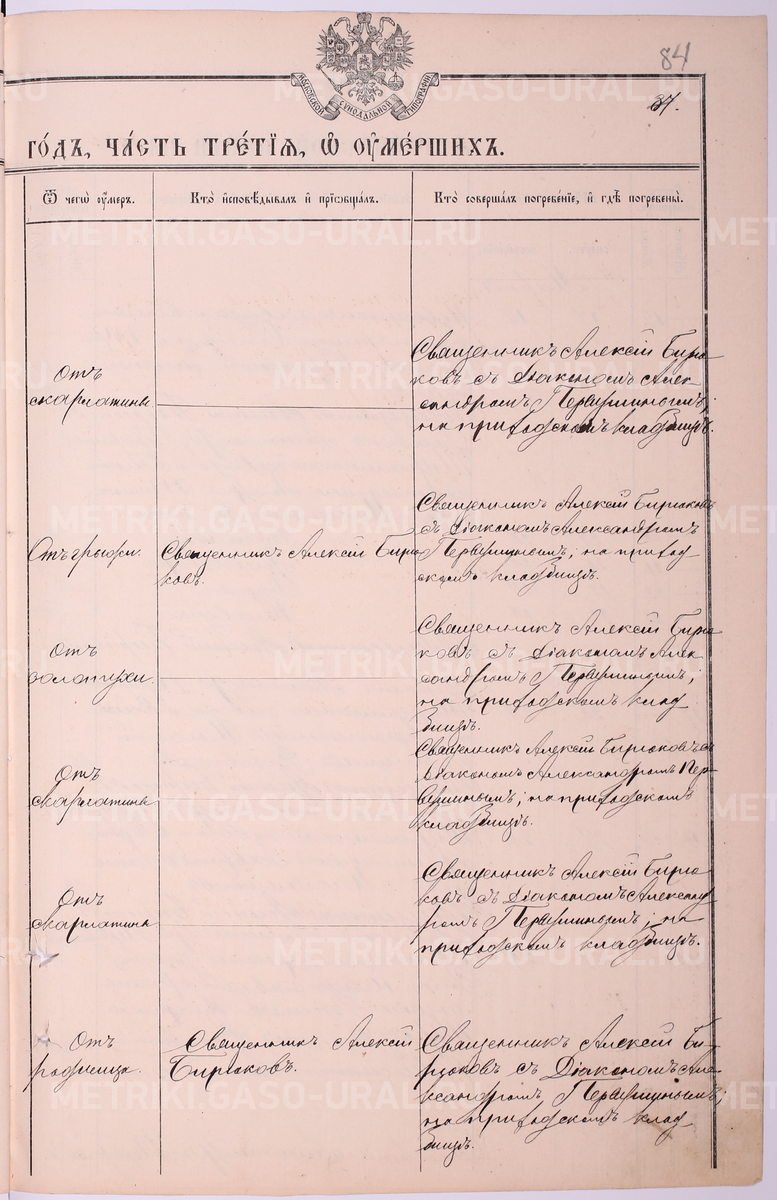 84
МОСКОВСКОЙ СѴНОДАЛЬНОЙ ТИПОГРАФІИ
37.
ГО́ДЪ, ЧА́СТЬ ТРЕ́ТІѦ, Ѡ҆ ОУ҆МЕ́РШИХЪ.
Ѿ чегѡ̀ оу҆́меръ.
Кто̀ и҆сповѣ́дывалъ и҆ прїѡбща́лъ.
Кто̀ соверша́лъ погребе́нїе, и҆ гдѣ̀ погребены̀.
Отъ
скарлатины
Священникъ Алексій Бирю
ковъ съ Діакономъ Алек
сандромъ Первушинымъ;
на приходскомъ кладбищѣ.
Отъ грыжи.
Священникъ Алексій Бирю
ковъ.
Священникъ Алексій Бирюковъ
съ Діакономъ Александромъ
Первушинымъ; на приход
скомъ кладбищѣ.
Отъ
золотухи.
Священникъ Алексій Бирю
ковъ съ Діакономъ Алек
сандромъ Первушинымъ;
на приходскомъ клад
бищѣ.
Отъ
скарлатины
Священникъ Алексій Бирюковъ съ
Діакономъ Александромъ Пер
вушинымъ; на приходскомъ
кладбищѣ.
Отъ
скарлатины
Священникъ Алексій Бирю
ковъ съ Діакономъ Александ
ромъ Первушинымъ; на
приходскомъ кладбищѣ.
Отъ
родимца.
Священникъ Алексій
Бирюковъ.
Священникъ Алексій Би
рюковъ съ Діакономъ Але
ксандромъ Первушинымъ;
на приходскомъ клад
бищѣ.
METRIKI.GASO-URAL.RU